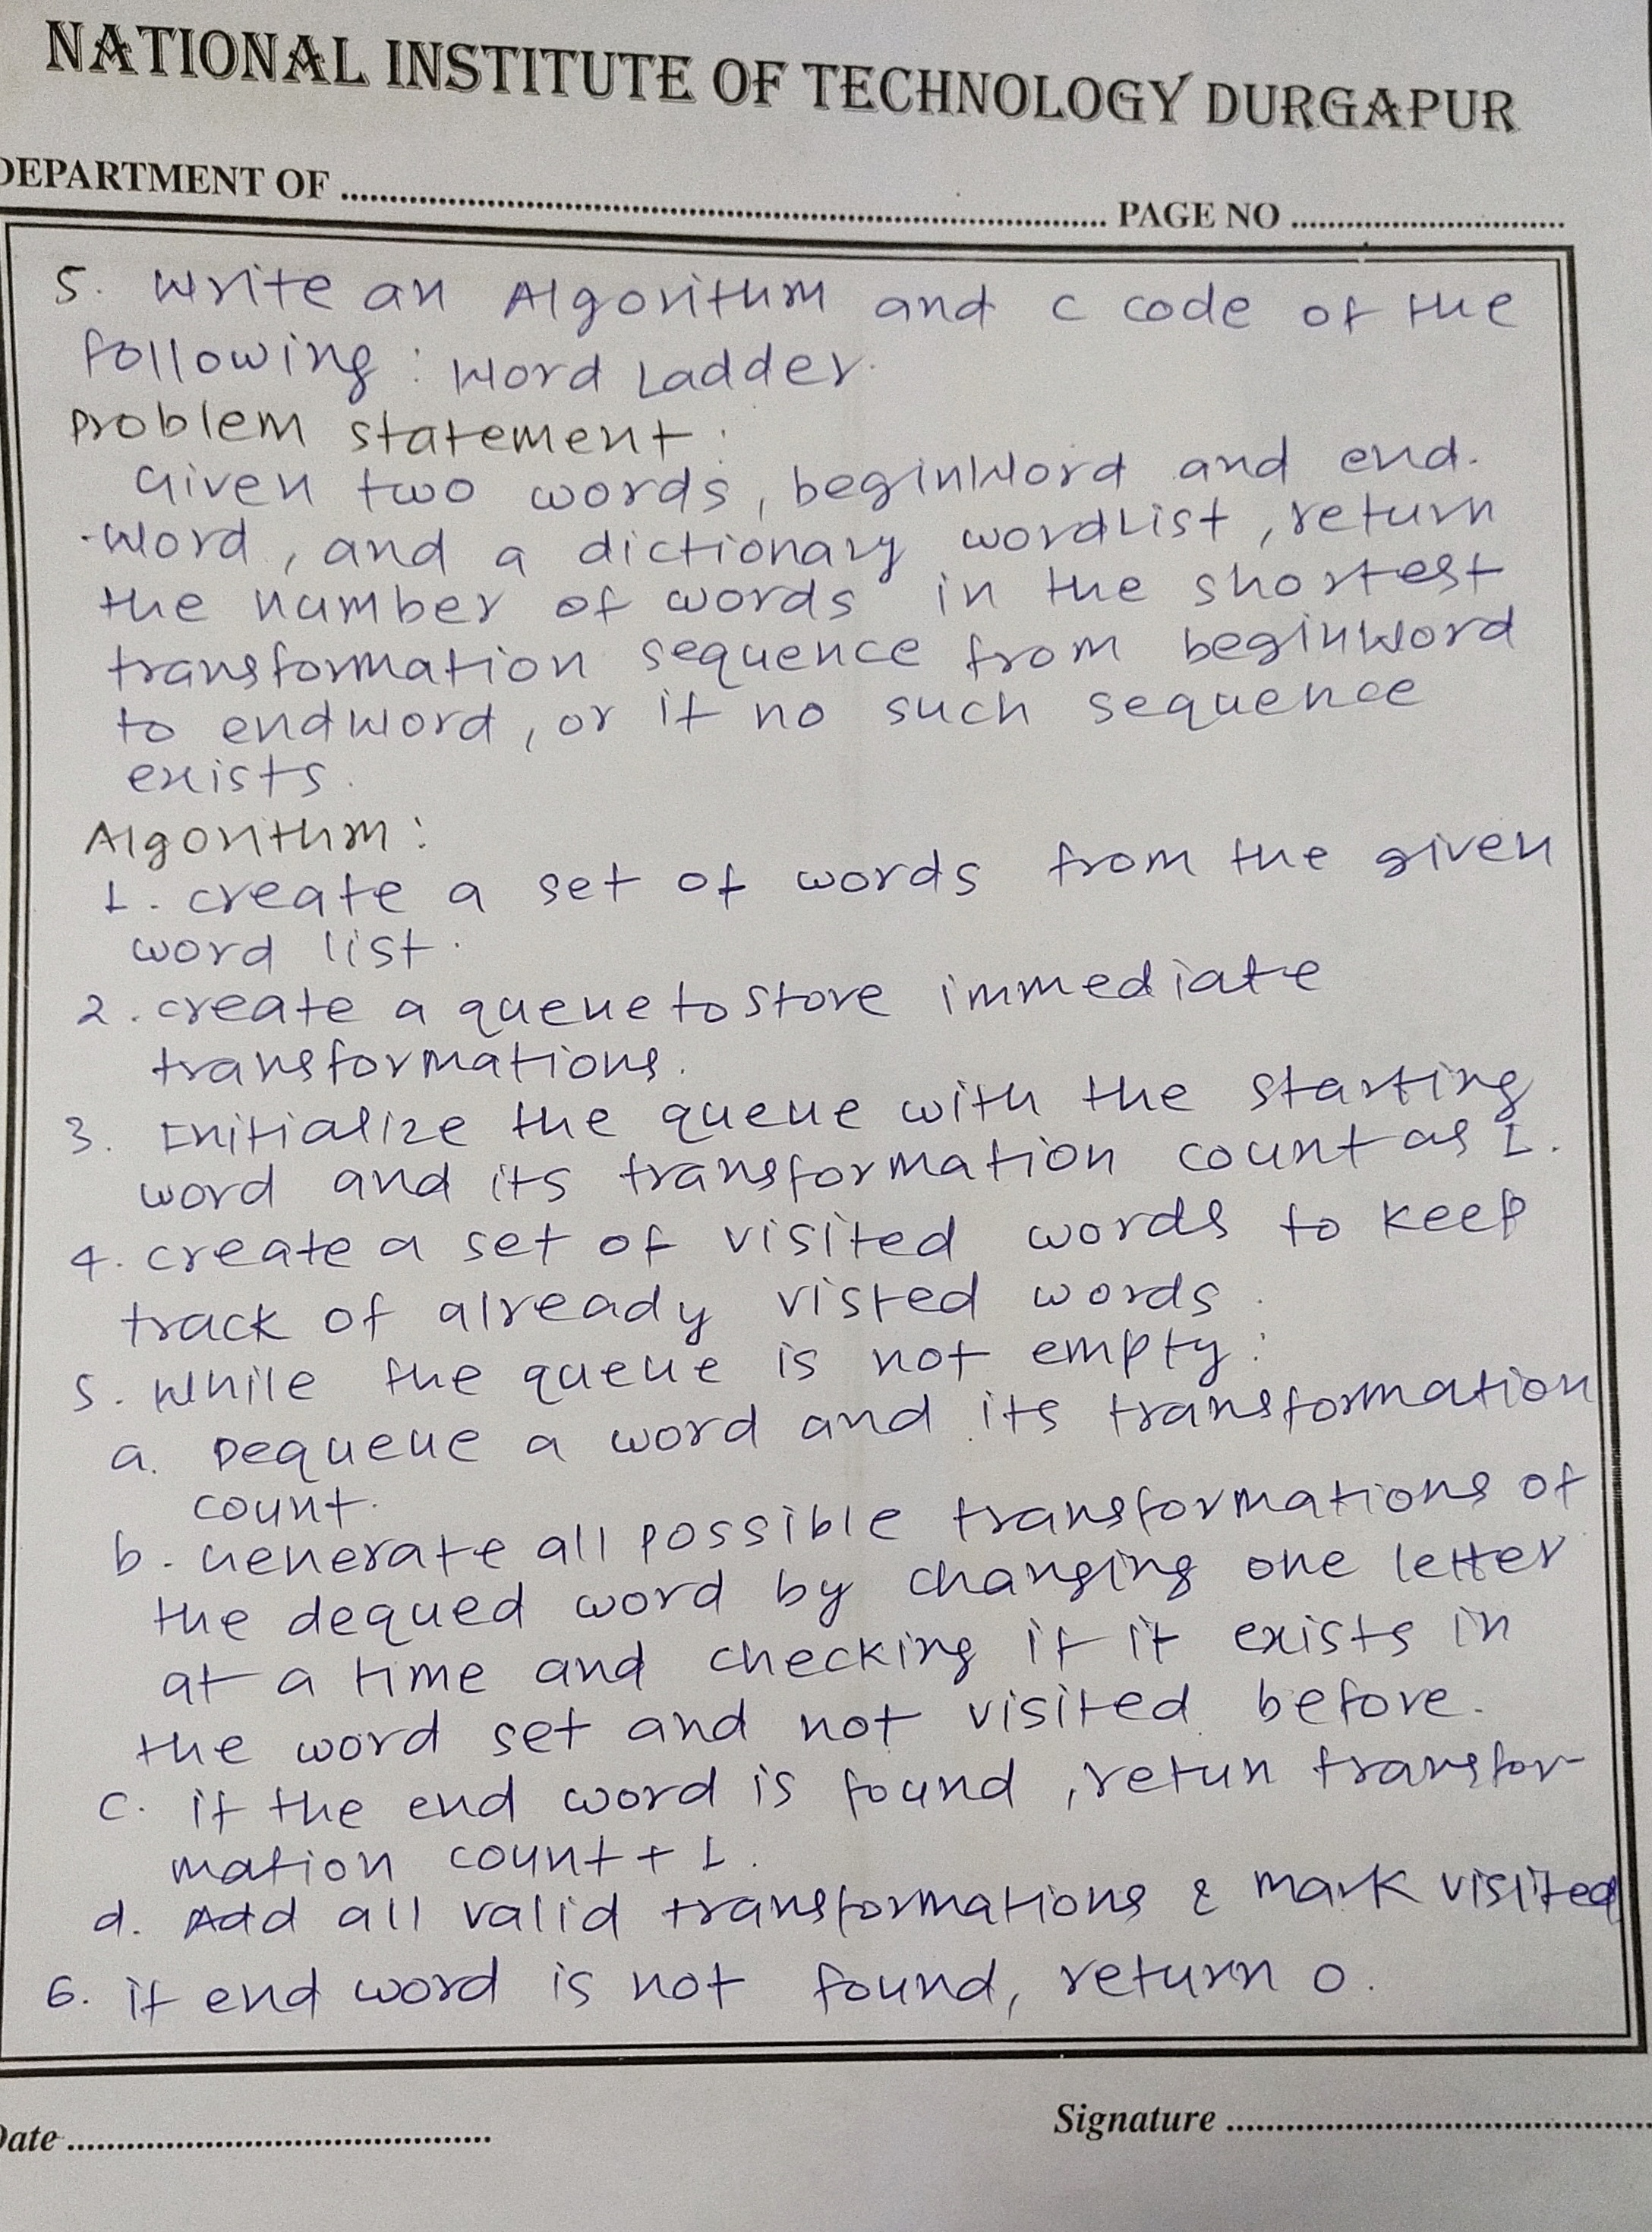 NATIONAL INSTITUTE OF TECHNOLOGY DURGAPUR
DEPARTMENT OF ........ PAGE NO ........
5. Write an Algorithm and C code of the
following : Word Ladder.
Problem statement :
Given two words, beginWord and end-
-Word, and a dictionary wordList, return
the number of words in the shortest
transformation sequence from beginWord
to endWord, or if no such sequence
exists.
Algorithm :
1. create a set of words from the given
word list.
2. create a queue to store immediate
transformations.
3. Initialize the queue with the starting
word and its transformation count as 1.
4. create a set of visited words to keep
track of already visted words.
5. While the queue is not empty :
a. Dequeue a word and its transformation
count.
b. Generate all possible transformations of
the dequed word by changing one letter
at a time and checking if it exists in
the word set and not visited before.
c. if the end word is found, retun transfor-
mation count + 1.
d. Add all valid transformations & mark visited
6. if end word is not found, return 0.
Date ........ Signature ........